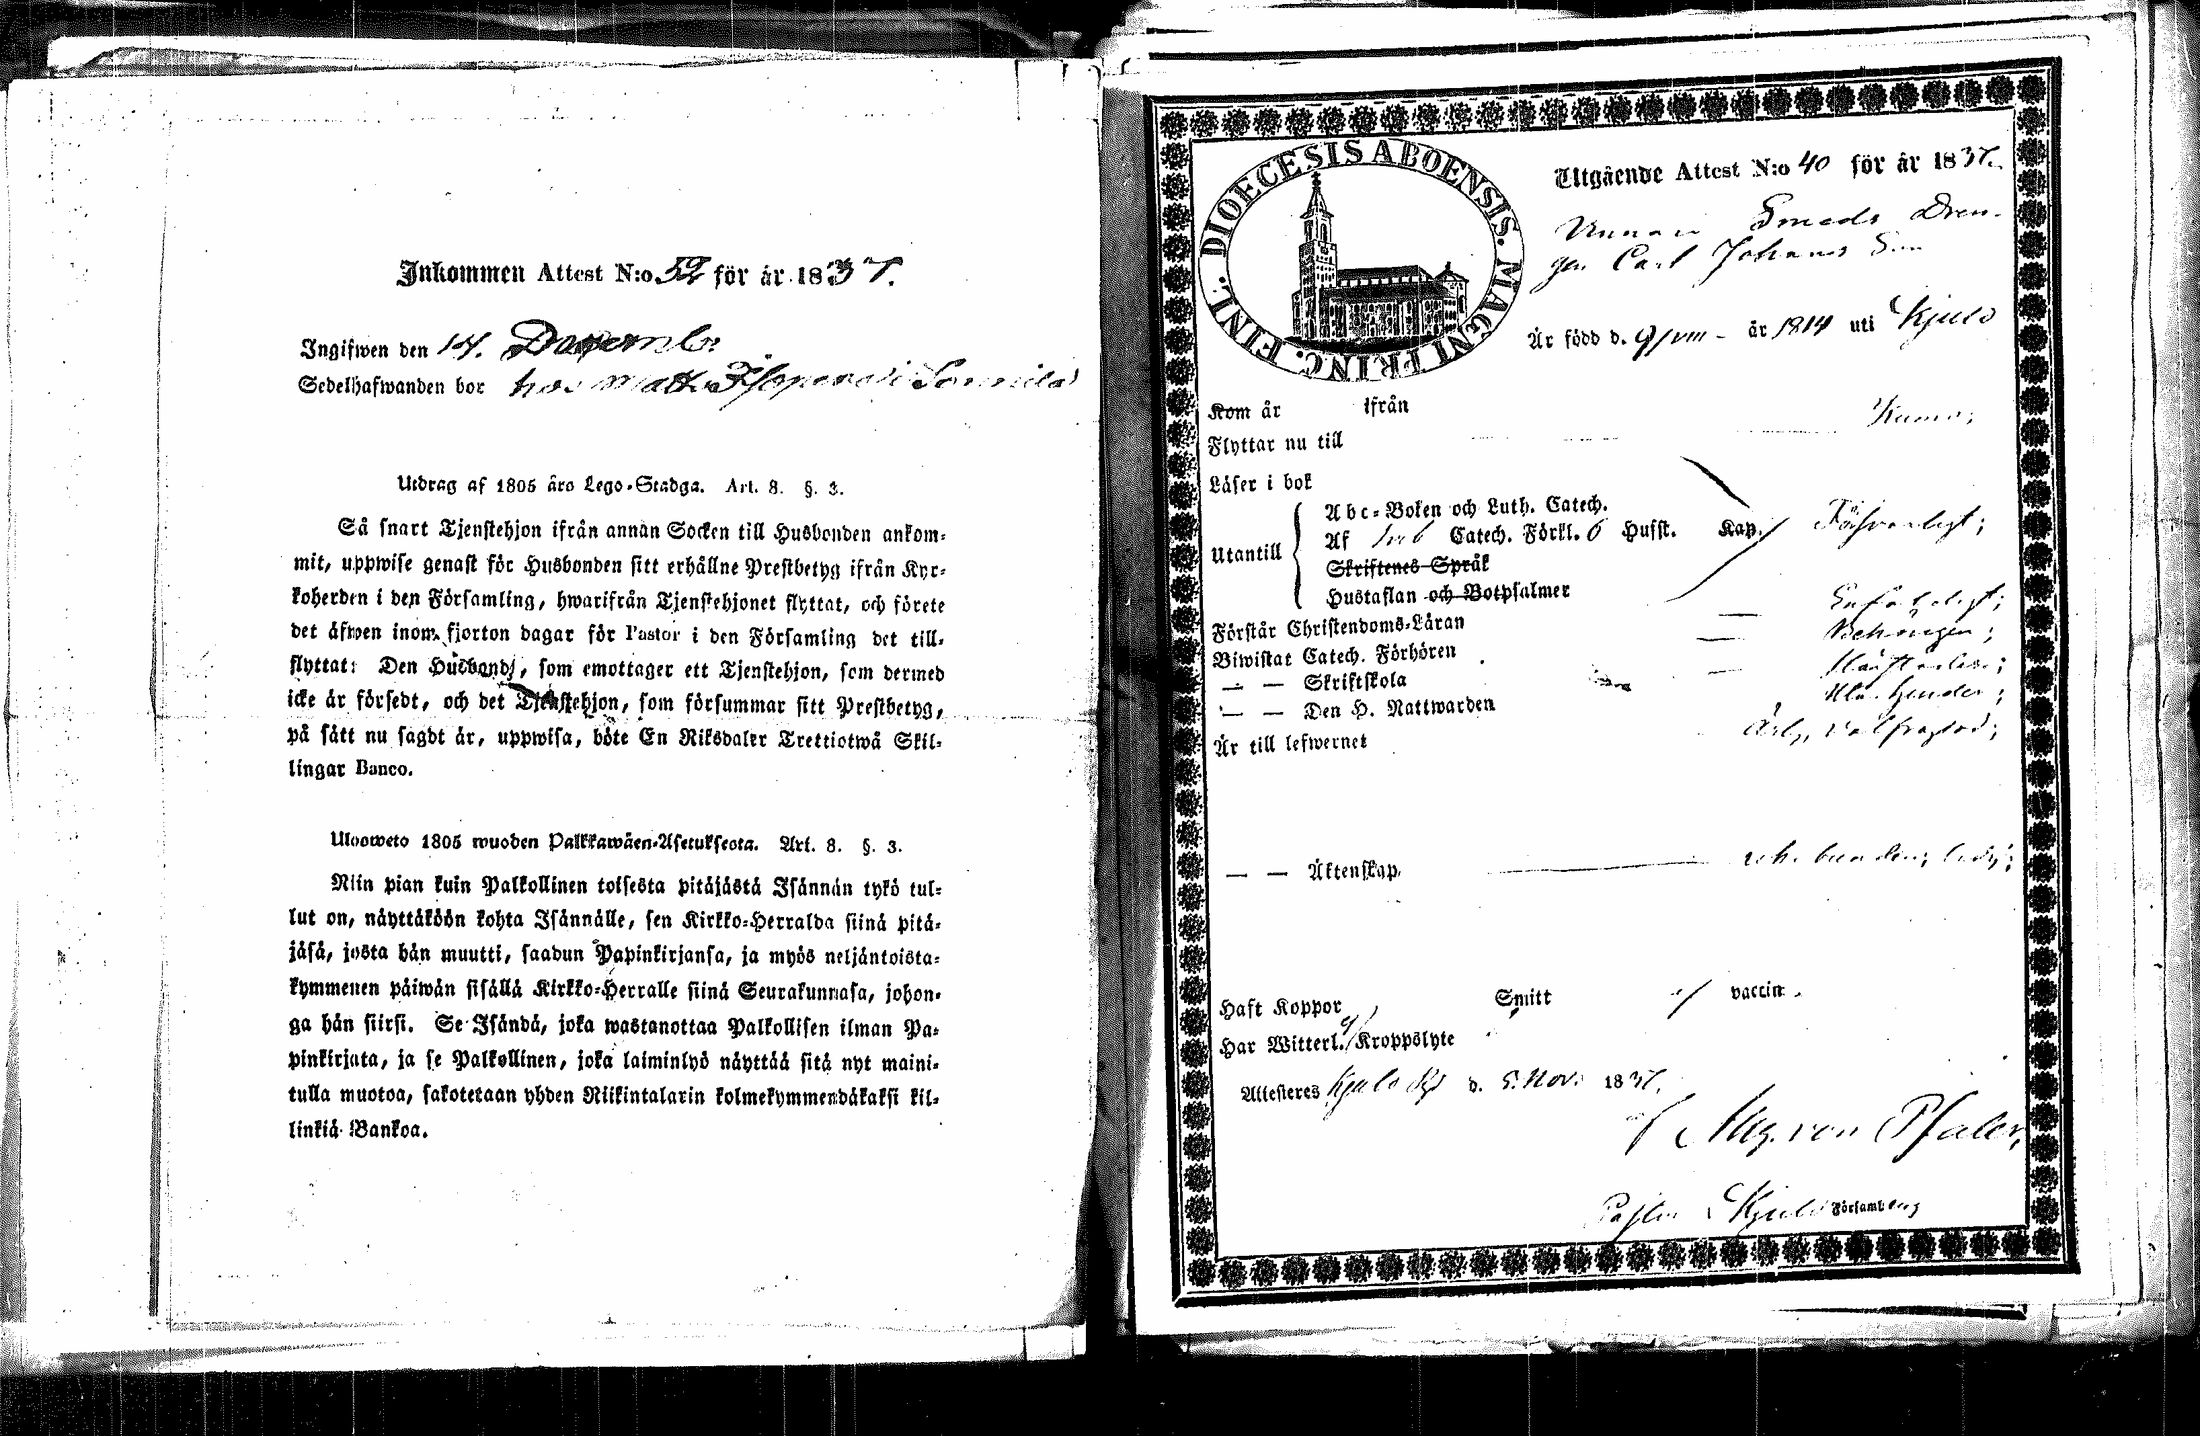 Inkommen Attest N:o 52 för år 1837.
Ingifwen den 14. Decemb:
Sedelhafwanden bor hos Matts i
Utdrag af 1805 års Lego-Stadga. Art. 8. §. 3.
Så snart Tjenstehjon ifrån annan Socken till Husbonden ankom-
mit, uppwise genast för Husbonden sitt erhållne Prestbetyg ifrån Kyr-
koherden i den Församling, hwarifrån Tjenstehjonet flyttat, och förete
det äfwen inom fjorton dagar för Pastor i den Församling det till-
flyttat: Den Husbonde, som emottager ett Tjenstehjon, som dermed
icke är försedt, och det Tjenstehjon, som försummar sitt Prestbetyg,
på sätt nu sagdt är, uppwisa, böte En Riksdaler Trettiotwå Skil-
lingar Banco.
Ulosweto 1805 wuoden Palkkawäen-Asetuksesta. Art. 8. §. 3.
Niin pian kuin Palkollinen toisesta pitäjästä Isännän tykö tul-
lut on, näyttäköön kohta Isännälle, sen Kirkko-Herralda siinä pitä-
jäsä, josta hän muutti, saadun Papinkirjansa, ja myös neljäntoista-
kymmenen päiwän sisällä Kirkko-Herralle siinä Seurakunnasa, johon-
ga hän siirsi. Se Isändä, joka wastanottaa Palkollisen ilman Pa-
pinkirjata, ja se Palkollinen, joka laiminlyö näyttää sitä nyt maini-
tulla muotoa, sakotetaan yhden Riikintalarin kolmekymmendäkaksi kil-
linkiä Bankoa.
DIOECESIS ABOENSIS. MAGNI PRINC. FINL.
Utgående Attest N:o 40 för år 1837.
Smeds Dren-
gen Carl Johans Son
Är född d. 9/VIII - år 1814 uti Kjulo
Kom år ifrån
Flyttar nu till Kumo;
Läser i bok
Abc-Boken och Luth. Catech.
Utantill Af Catech. Förkl. 6 Hufst. Kap. Försvarligt;
Skriftenes Språk
Hustaflan och Botpsalmer
Förstår Christendoms-Läran
Biwistat Catech. Förhören
— — Skriftskola
— — Den H. Nattwarden
Är till lefwernet
— — Äktenskap
Haft Koppor Smitt vaccin.
Har Witterl. Kroppslyte
Attesteres Kjulo d. 5. Nov. 1837.
Aug. von Pfaler,
Kjulo Församling